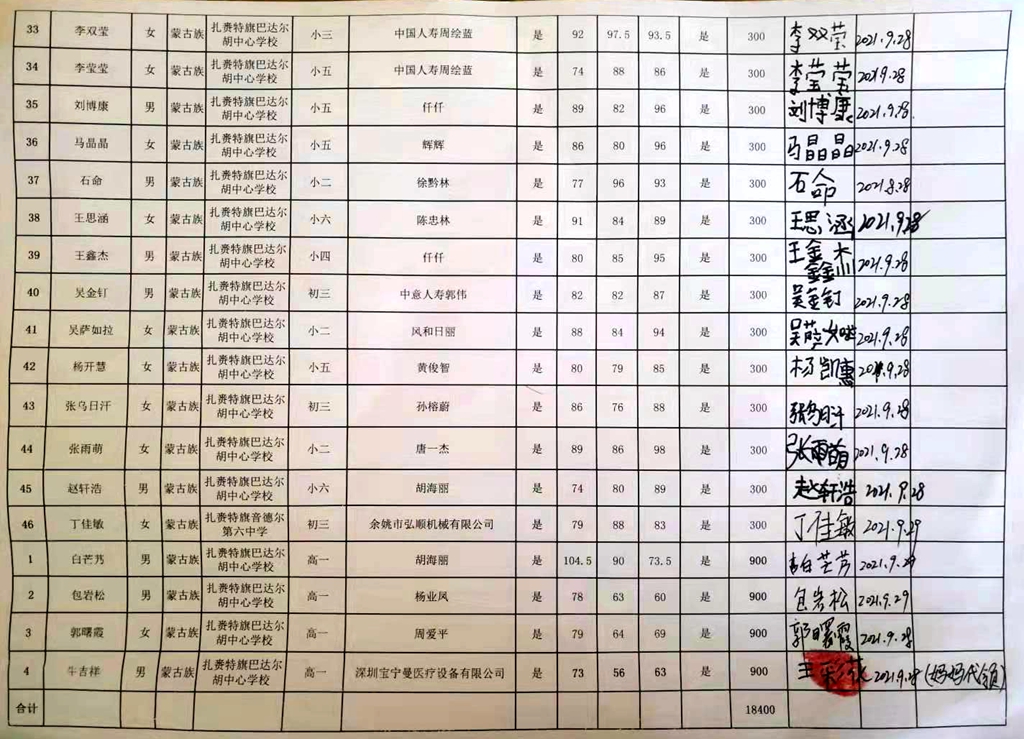 33 李双莹 女 蒙古族 扎赉特旗巴达尔胡中心学校 小三 中国人寿周绘蓝 是 92 97.5 93.5 是 300 李双莹 2021.9.28
34 李莹莹 女 蒙古族 扎赉特旗巴达尔胡中心学校 小五 中国人寿周绘蓝 是 74 88 86 是 300 李莹莹 2021.9.28
35 刘博康 男 蒙古族 扎赉特旗巴达尔胡中心学校 小五 仟仟 是 89 82 96 是 300 刘博康 2021.9.28.
36 马晶晶 女 蒙古族 扎赉特旗巴达尔胡中心学校 小五 辉辉 是 86 80 96 是 300 马晶晶 2021.9.28
37 石命 男 蒙古族 扎赉特旗巴达尔胡中心学校 小二 徐黔林 是 77 96 93 是 300 石命 2021.8.28
38 王思涵 女 蒙古族 扎赉特旗巴达尔胡中心学校 小六 陈忠林 是 91 84 89 是 300 王思涵 2021.9.28
39 王鑫杰 男 蒙古族 扎赉特旗巴达尔胡中心学校 小四 仟仟 是 80 85 95 是 300 王鑫杰 2021.9.28
40 吴金钉 男 蒙古族 扎赉特旗巴达尔胡中心学校 初三 中意人寿郭伟 是 82 82 87 是 300 吴金钉 2021.9.28
41 吴萨如拉 女 蒙古族 扎赉特旗巴达尔胡中心学校 小二 风和日丽 是 88 84 94 是 300 2021.9.28
42 杨开慧 女 蒙古族 扎赉特旗巴达尔胡中心学校 小五 黄俊智 是 80 79 85 是 300 杨凯惠 2021.9.28
43 张乌日汗 女 蒙古族 扎赉特旗巴达尔胡中心学校 初三 孙榕蔚 是 86 76 88 是 300 2021.9.28
44 张雨萌 女 蒙古族 扎赉特旗巴达尔胡中心学校 小二 唐一杰 是 89 86 98 是 300 张雨萌 2021.9.28
45 赵轩浩 男 蒙古族 扎赉特旗巴达尔胡中心学校 小六 胡海丽 是 74 80 89 是 300 赵轩浩 2021.9.28
46 丁佳敏 女 蒙古族 扎赉特旗音德尔第六中学 初三 余姚市弘顺机械有限公司 是 79 88 83 是 300 丁佳敏 2021.9.29
1 白芒芀 男 蒙古族 扎赉特旗巴达尔胡中心学校 高一 胡海丽 是 104.5 90 73.5 是 900 2021.9.29
2 包岩松 男 蒙古族 扎赉特旗巴达尔胡中心学校 高一 杨业凤 是 78 63 60 是 900 包岩松 2021.9.29
3 郭曙霞 女 蒙古族 扎赉特旗巴达尔胡中心学校 高一 周爱平 是 79 64 69 是 900 郭曙霞 2021.9.28
4 牛吉祥 男 蒙古族 扎赉特旗巴达尔胡中心学校 高一 深圳宝宁曼医疗设备有限公司 是 73 56 63 是 900 王彩花 2021.9.28 (妈妈代领)
合计 18400